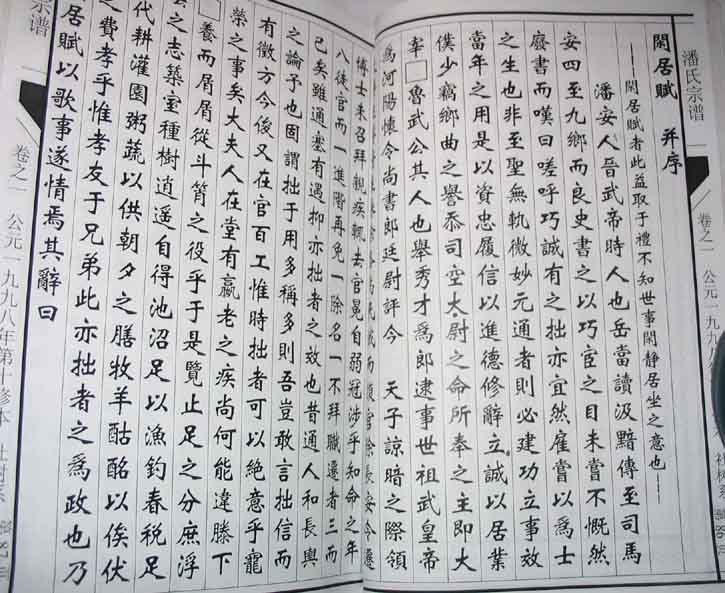 潘氏宗谱
卷之一
公元一九九
閑居賦 并序
——閑居賦者此益取于禮不知世事閑静居坐之意也——
潘安人晉武帝時人也岳當讀汲黯傳至司馬
安四至九鄉而良史書之以巧宦之目未嘗不慨然
廢書而嘆曰嗟呼巧誠有之拙亦宜然雇嘗以爲士
之生也非至聖無軌微妙元通者則必建功立事效
當年之用是以資忠履信以進德修辭立誠以居業
僕少竊鄉曲之譽忝司空太尉之命所奉之主即大
宰□魯武公其人也舉秀才爲郎逮事世祖武皇帝
爲河陽懷令尚書郎廷尉評今 天子諒暗之際領
官除長安令遷
博士未召拜親疾輒去官冕自弱冠涉乎知命之年
八徙官而一進階再免一除名一不拜職遷者三而
已矣雖通塞有遇抑亦拙者之效也昔通人和長輿
之論予也固謂拙于用多稱多則吾豈敢言拙信而
有徵方今俊又在官百工惟時拙者可以絶意乎寵
榮之事矣大夫人在堂有羸老之疾尚何能違膝下
□養而屑屑從斗筲之役乎于是覽止足之分庶浮
云之志築室種樹逍遥自得池沼足以漁釣春税足
代耕灌園粥蔬以供朝夕之膳牧羊酤酪以俟伏
之費孝乎惟孝友于兄弟此亦拙者之爲政也乃
居賦以歌事遂情焉其辭曰
宗谱
卷之一
公元一九九八年第十修本